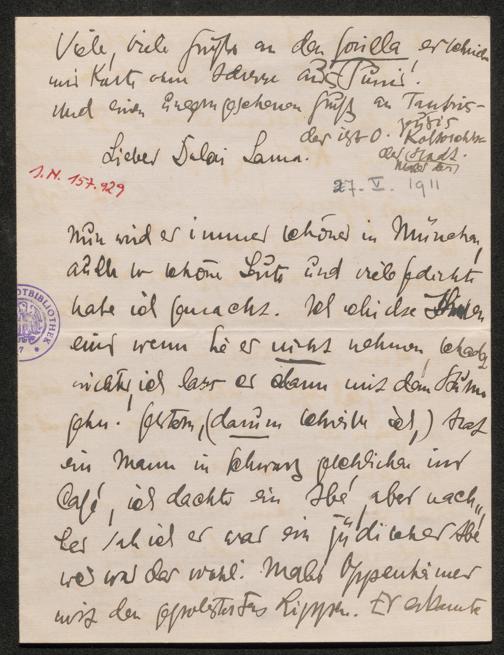 Viele, viele Grüße an den Gorilla, er schrieb
mir Karte ohne Adresse aus Tunis!
Und einen ungemgesehenen Gruß an
der ist O. Kokoschka
der Stadt.
Lieber Dalai Lama.
J.N. 157.929
27. V. 1911
Nun wird es immer schöner in München,
auch so schöne Leute und viele Gedichte
habe ich gemacht. Ich schicke Ihnen
eins wenn Sie es nicht nehmen, schadet
nichts, ich lass es dann mit dem Sturm
gehn. Gestern, (darum schreibe ich,) trat
ein Mann in Schwarz geschlichen ins
Café, ich dachte ein Abé, aber nach-
her sah ich er war ein jüdischer Abé
wer war der wohl. Maler Oppenheimer
mit den gepolsterten Lippen. Er erkannte